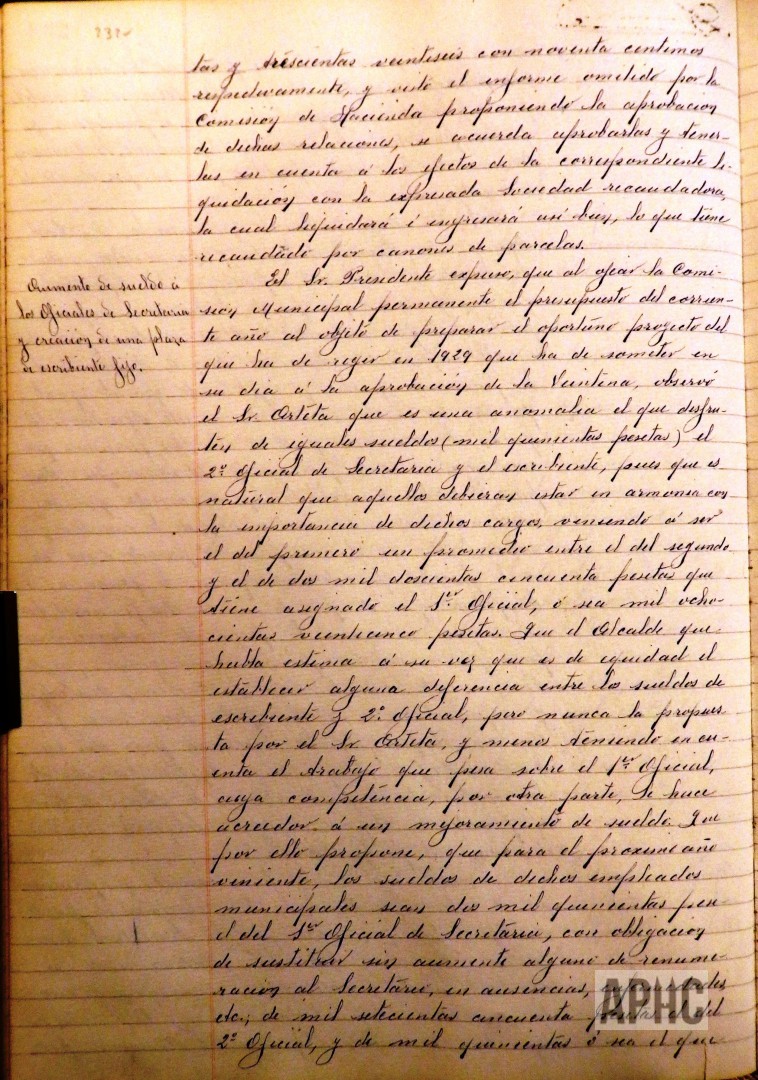 232
tas y trescientas veintiseis con noventa centimos
respectivamente, y visto el informe emitido por la
Comisión de Hacienda proponiendo la aprobacion
de dichas relaciones, se acuerda aprobarlas y tener-
las en cuenta á los efectos de la correspondiente li-
quidación con la expresada Sociedad recaudadora,
la cual liquidará é ingresará así bien, lo que tiene
recaudado por canones de parcelas.
Aumento de sueldo á
los Oficiales de Secretaria
y creación de una plaza
de escribiente fijo.
El Sr. Presidente expuso, que al ojear la Comi-
sión Municipal permanente el presupuesto del corrien-
te año al objeto de preparar el oportuno proyecto del
que ha de regir en 1929 que ha de someter en
su dia á la aprobación de la Veintena, observó
el Sr. Arteta que es una anomalia el que disfru-
ten de iguales sueldos (mil quinientas pesetas) el
2º Oficial de Secretaria y el escribiente, pues que es
natural que aquellos debieran estar en armonia con
la importancia de dichos cargos, viniendo á ser
el del primero un promedio entre el del segundo
y el de dos mil doscientas cincuenta pesetas que
tiene asignado el 1er Oficial, ó sea mil ocho-
cientas veinticinco pesetas. Que el Alcalde que
habla estima á su vez que es de equidad el
establecer alguna diferencia entre los sueldos de
escribiente y 2º Oficial, pero nunca la propues-
ta por el Sr Arteta, y menos teniendo en cu-
enta el trabajo que pesa sobre el 1er Oficial,
cuya competencia, por otra parte, le hace
acreedor á un mejoramiento de sueldo. Que
por ello propone, que para el proximo año
viniente, los sueldos de dichos empleados
municipales sean dos mil quinientas
el del 1er Oficial de Secretaria, con obligacion
de sustituir sin aumento alguno de renume-
ración al Secretario, en ausencias, enfermedades,
etc.; de mil setecientas cincuenta pesetas el del
2º Oficial, y de mil quinientas ó sea el que
APHC